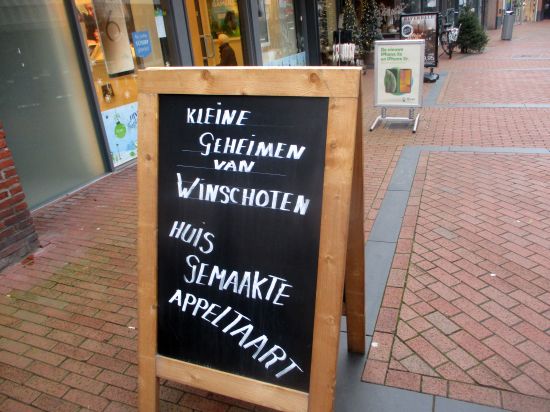 KLEINE
GEHEIMEN
VAN
WINSCHOTEN
HUIS
GEMAAKTE
APPELTAART